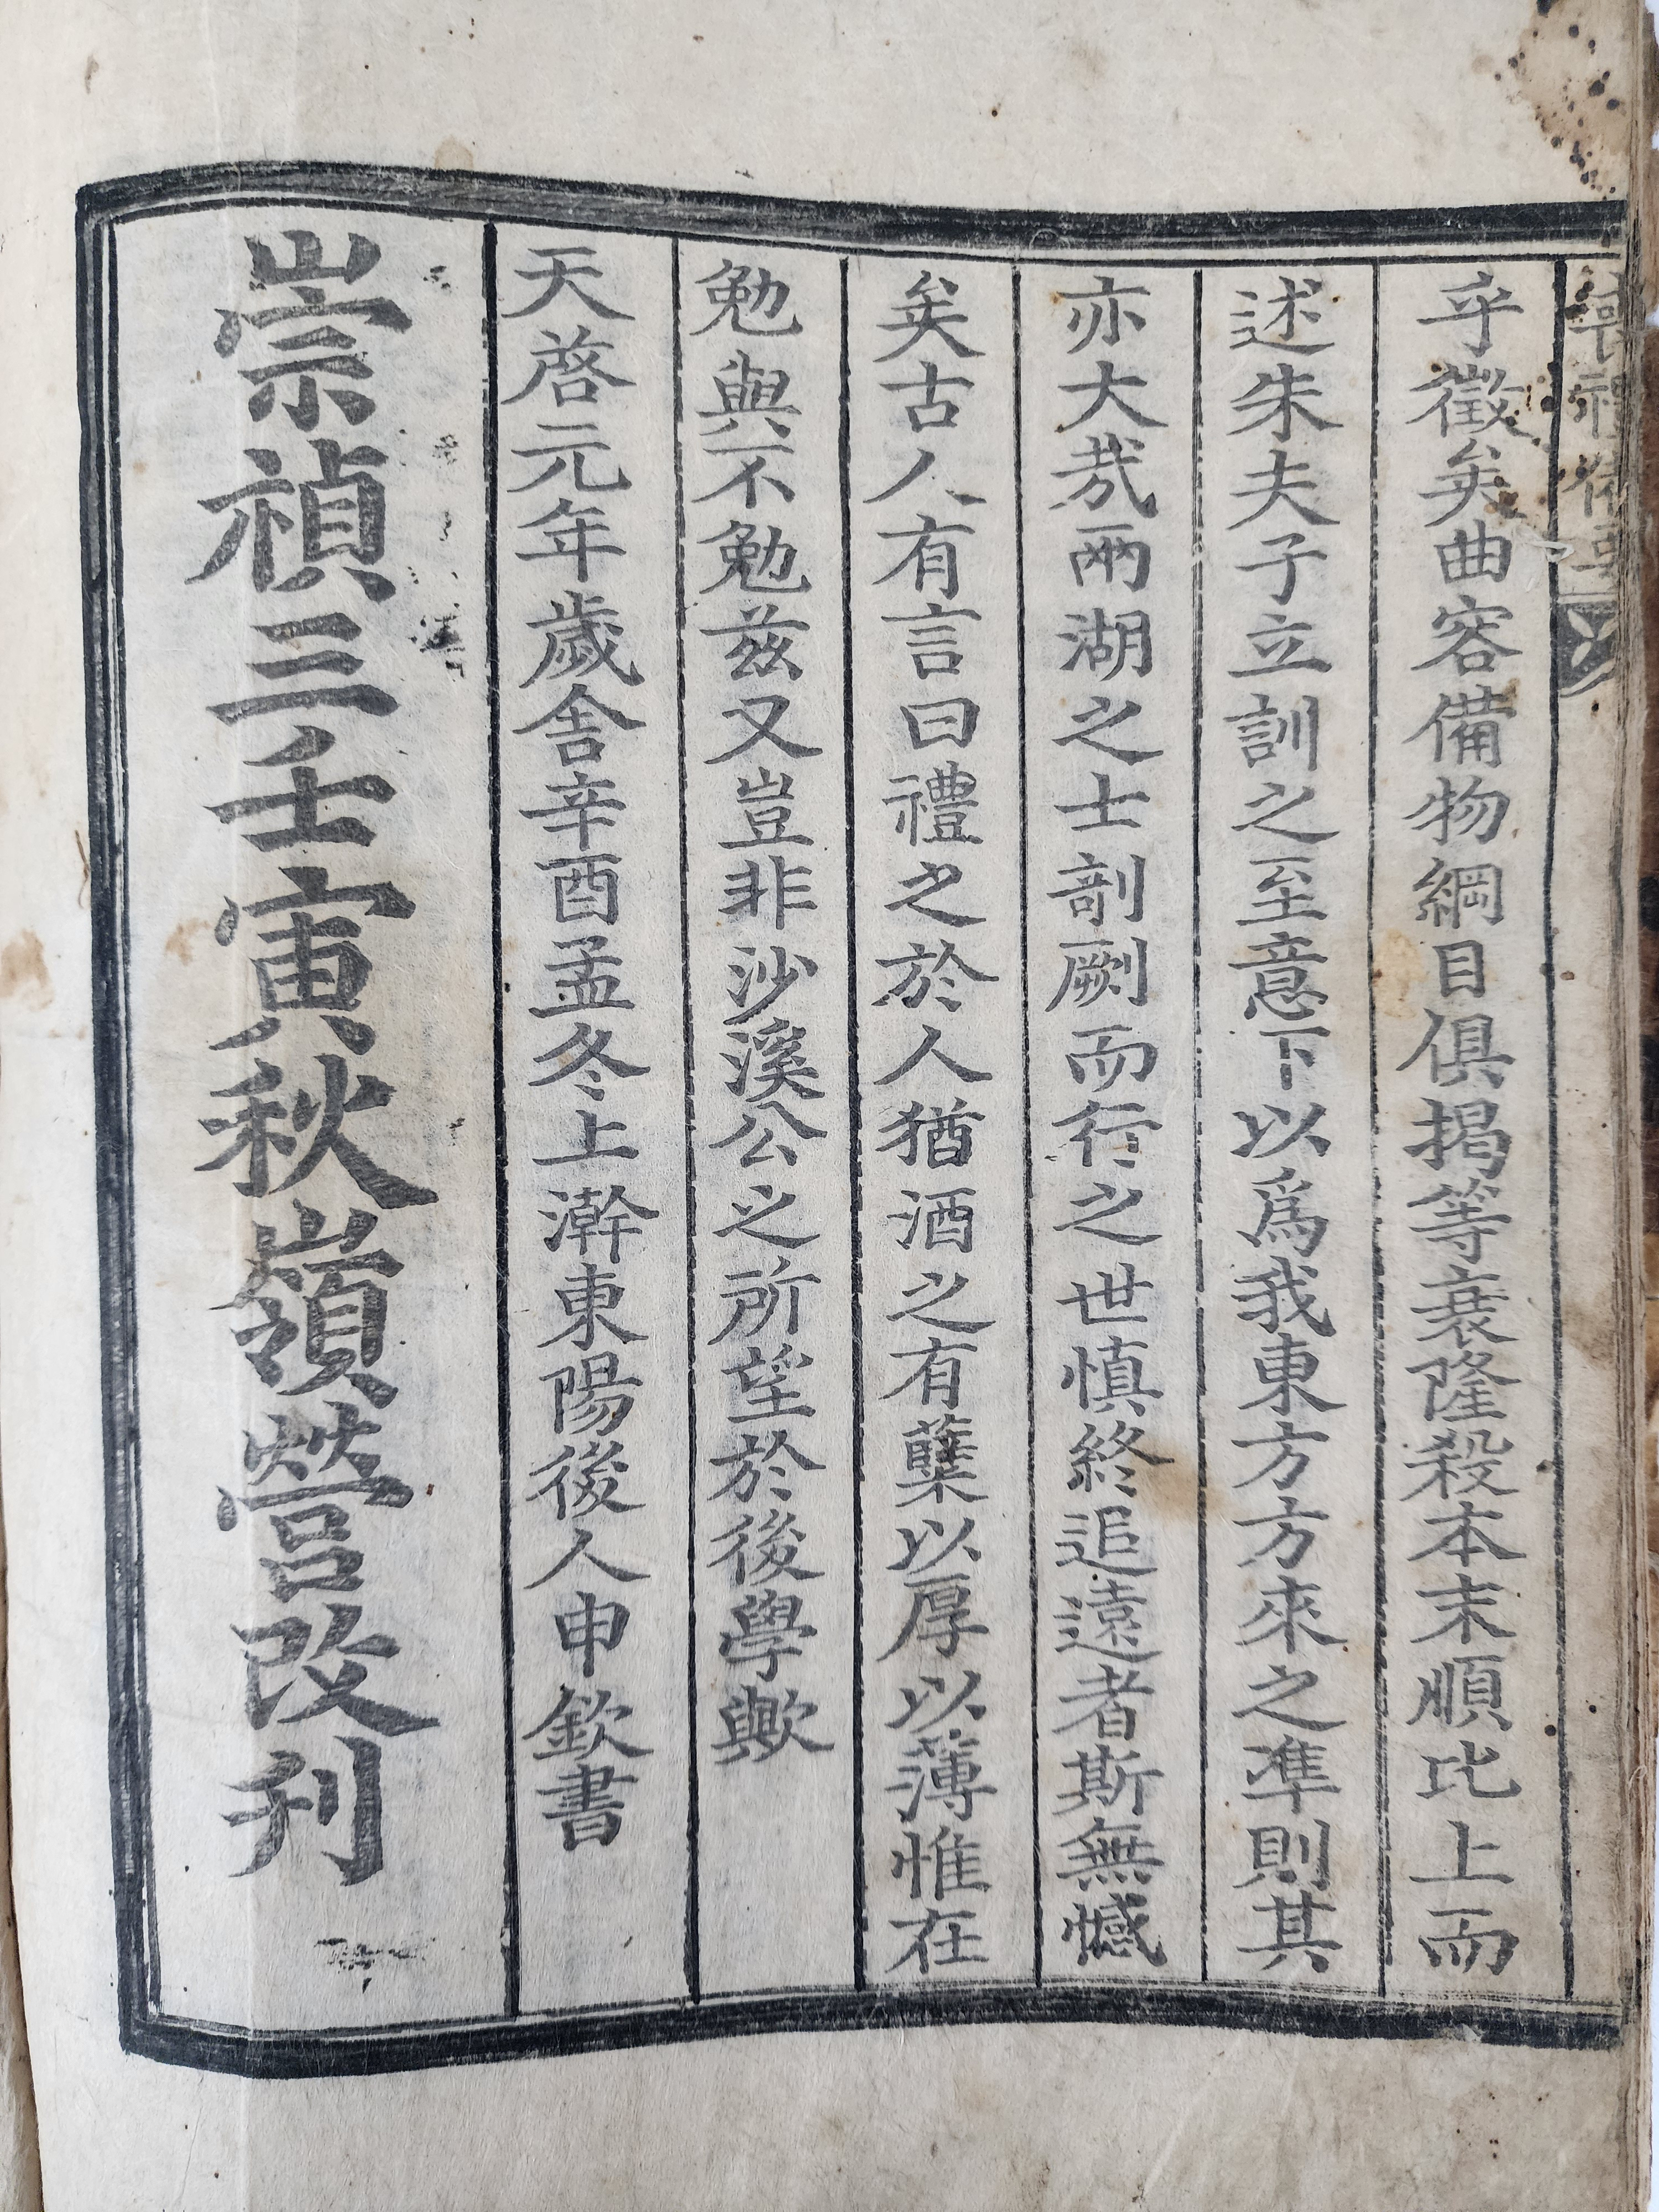 喪禮備要
乎徵矣曲容備物綱目俱揭等衰隆殺本末順比上而
述朱夫子立訓之至意下以爲我東方方來之準則其
亦大哉兩湖之士剞劂而行之世愼終追遠者斯無憾
矣古人有言曰禮之於人猶酒之有糱以厚以薄惟在
勉與不勉茲又豈非沙溪公之所望於後學歟
天啓元年歲舍辛酉孟冬上澣東陽後人申欽書
崇禎三壬寅秋嶺營改刊